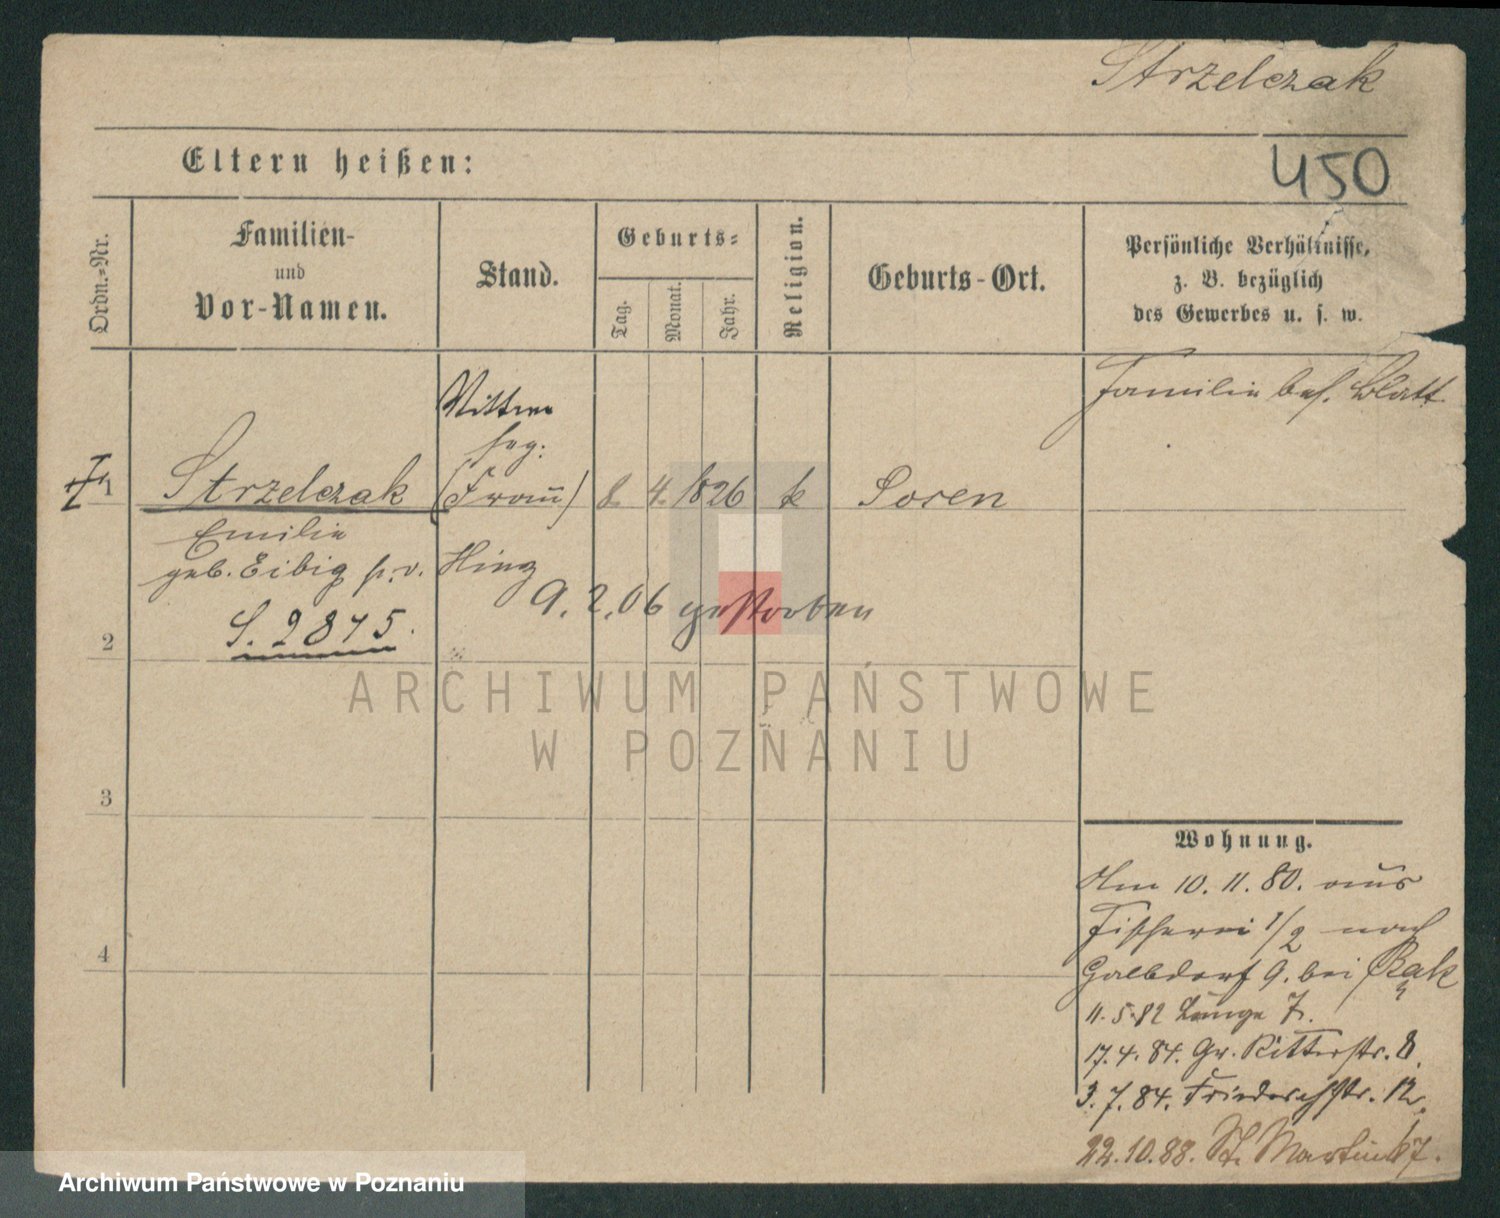 Strzelczak
450
Eltern heißen:
Ordn.=Nr.
Familien-
und
Vor-Namen.
Stand.
Geburts=
Tag.
Monat.
Jahr.
Religion.
Geburts-Ort.
Persönliche Verhältnisse,
z. B. bezüglich
des Gewerbes u. s. w.
Familie bes. Blatt
Wittwe
sep.
1 Strzelczak (Frau) 8 4. 1826 k Soren
Emilie
geb. Eibig p. v. Hinz
9. 2. 06 gestorben
S. 2875.
2
3
4
Wohnung.
Am 10. 11. 80. aus
Fischerei 1/2 nach
Halbdorf 9. bei Bąk
11. 5. 82 Lange 7.
17. 4. 84. Gr. Ritterstr. 8.
3. 7. 84. Friedrichstr. 12.
22. 10. 88. St. Martin 67.
ARCHIWUM PAŃSTWOWE
W POZNANIU
Archiwum Państwowe w Poznaniu